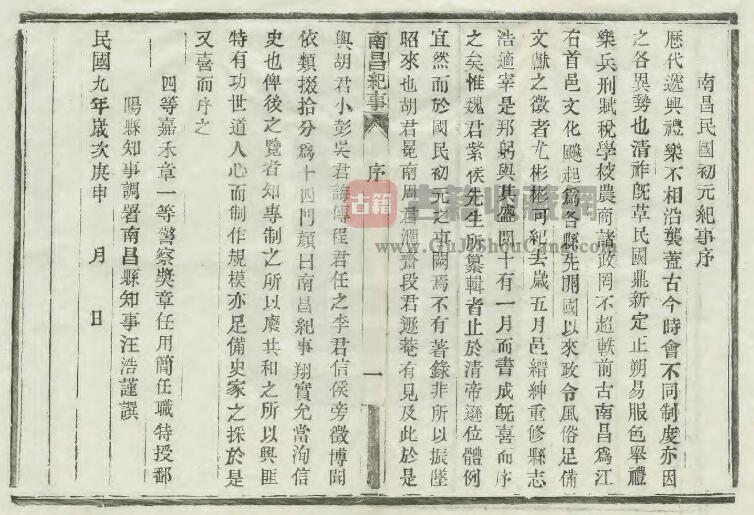 南昌民國初元紀事序
歷代遞興禮樂不相沿襲蓋古今時會不同制度亦因
之各異勢也清祚既革民國鼎新定正朔易服色舉禮
樂兵刑賦稅學校農商諸政罔不超軼前古南昌為江
右首邑文化飈起為各縣先開國以來政令風俗足備
文獻之徵者尤彬彬可紀去歲五月邑縉紳重修縣志
浩適宰是邦躬與其盛閱十有一月而書成既喜而序
之矣惟魏君紫侯先生所纂輯者止於清帝遜位體例
宜然而於國民初元之事闕焉不有著錄非所以振墜
昭來也胡君冕南周君澗齋段君遯菴有見及此於是
南昌紀事
序
一
與胡君小彭吳君誨傳程君任之李君信侯旁徵博聞
依類掇拾分為十四門顏曰南昌紀事翔實允當洵信
史也俾後之覽者知專制之所以廢共和之所以興匪
特有功世道人心而制作規模亦足備史家之採於是
又喜而序之
四等嘉禾章一等警察獎章任用簡任職特授鄱
陽縣知事調署南昌縣知事汪浩謹譔
民國九年歲次庚申 月 日
古籍 古籍收藏網
www.GuJiShouCang.com